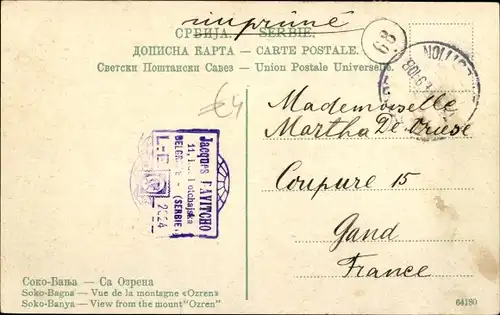 imprimé
СРБИЈА. SERBIE.
ДОПИСНА КАРТА — CARTE POSTALE.
Светски Поштански Савез — Union Postale Universelle.
68
€4
Mademoiselle
Martha De Vriese
Coupure 15
Gand
France
Jacques DAVITCHO
BELGRADE - (SERBIE)
L-E 2024
Соко-Бања — Са Озрена
Soko-Bagna — Vue de la montagne «Ozren»
Soko-Banya — View from the mount "Ozren"
64180